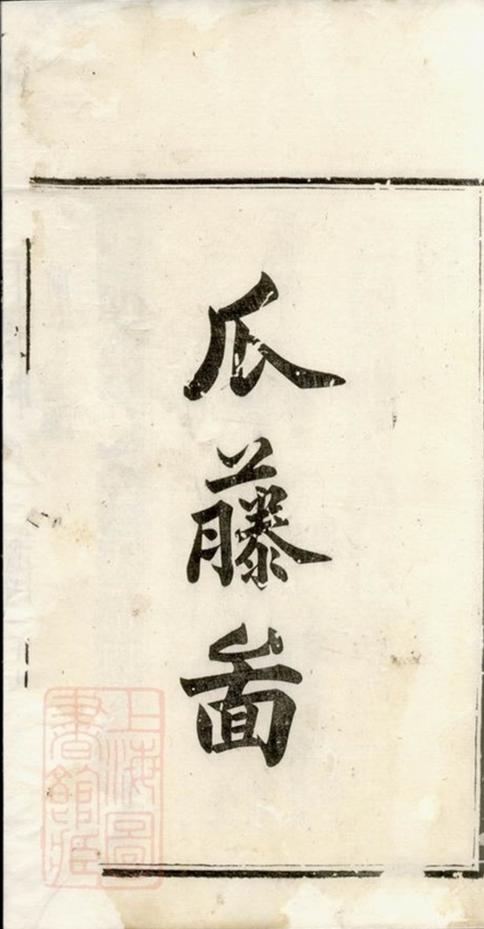 瓜藤啚
上海圖
書館藏